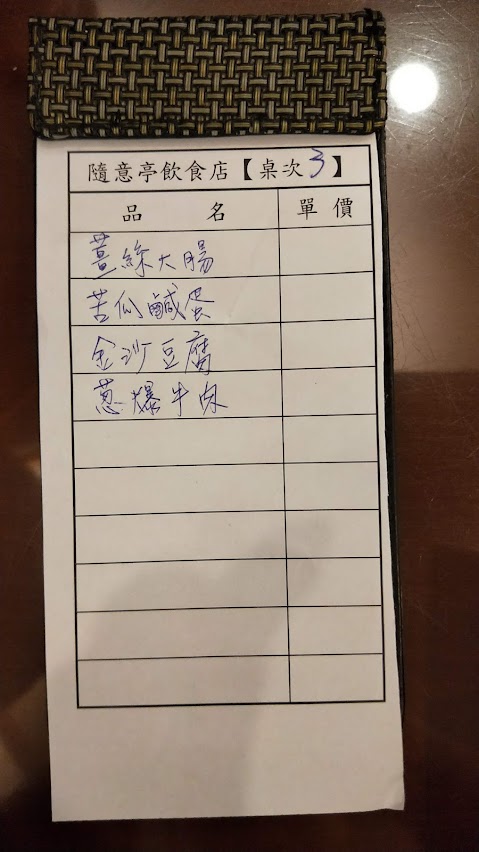 隨意亭飲食店【桌次3】
品名 單價
薑絲大腸
苦瓜鹹蛋
金沙豆腐
蔥爆牛肉